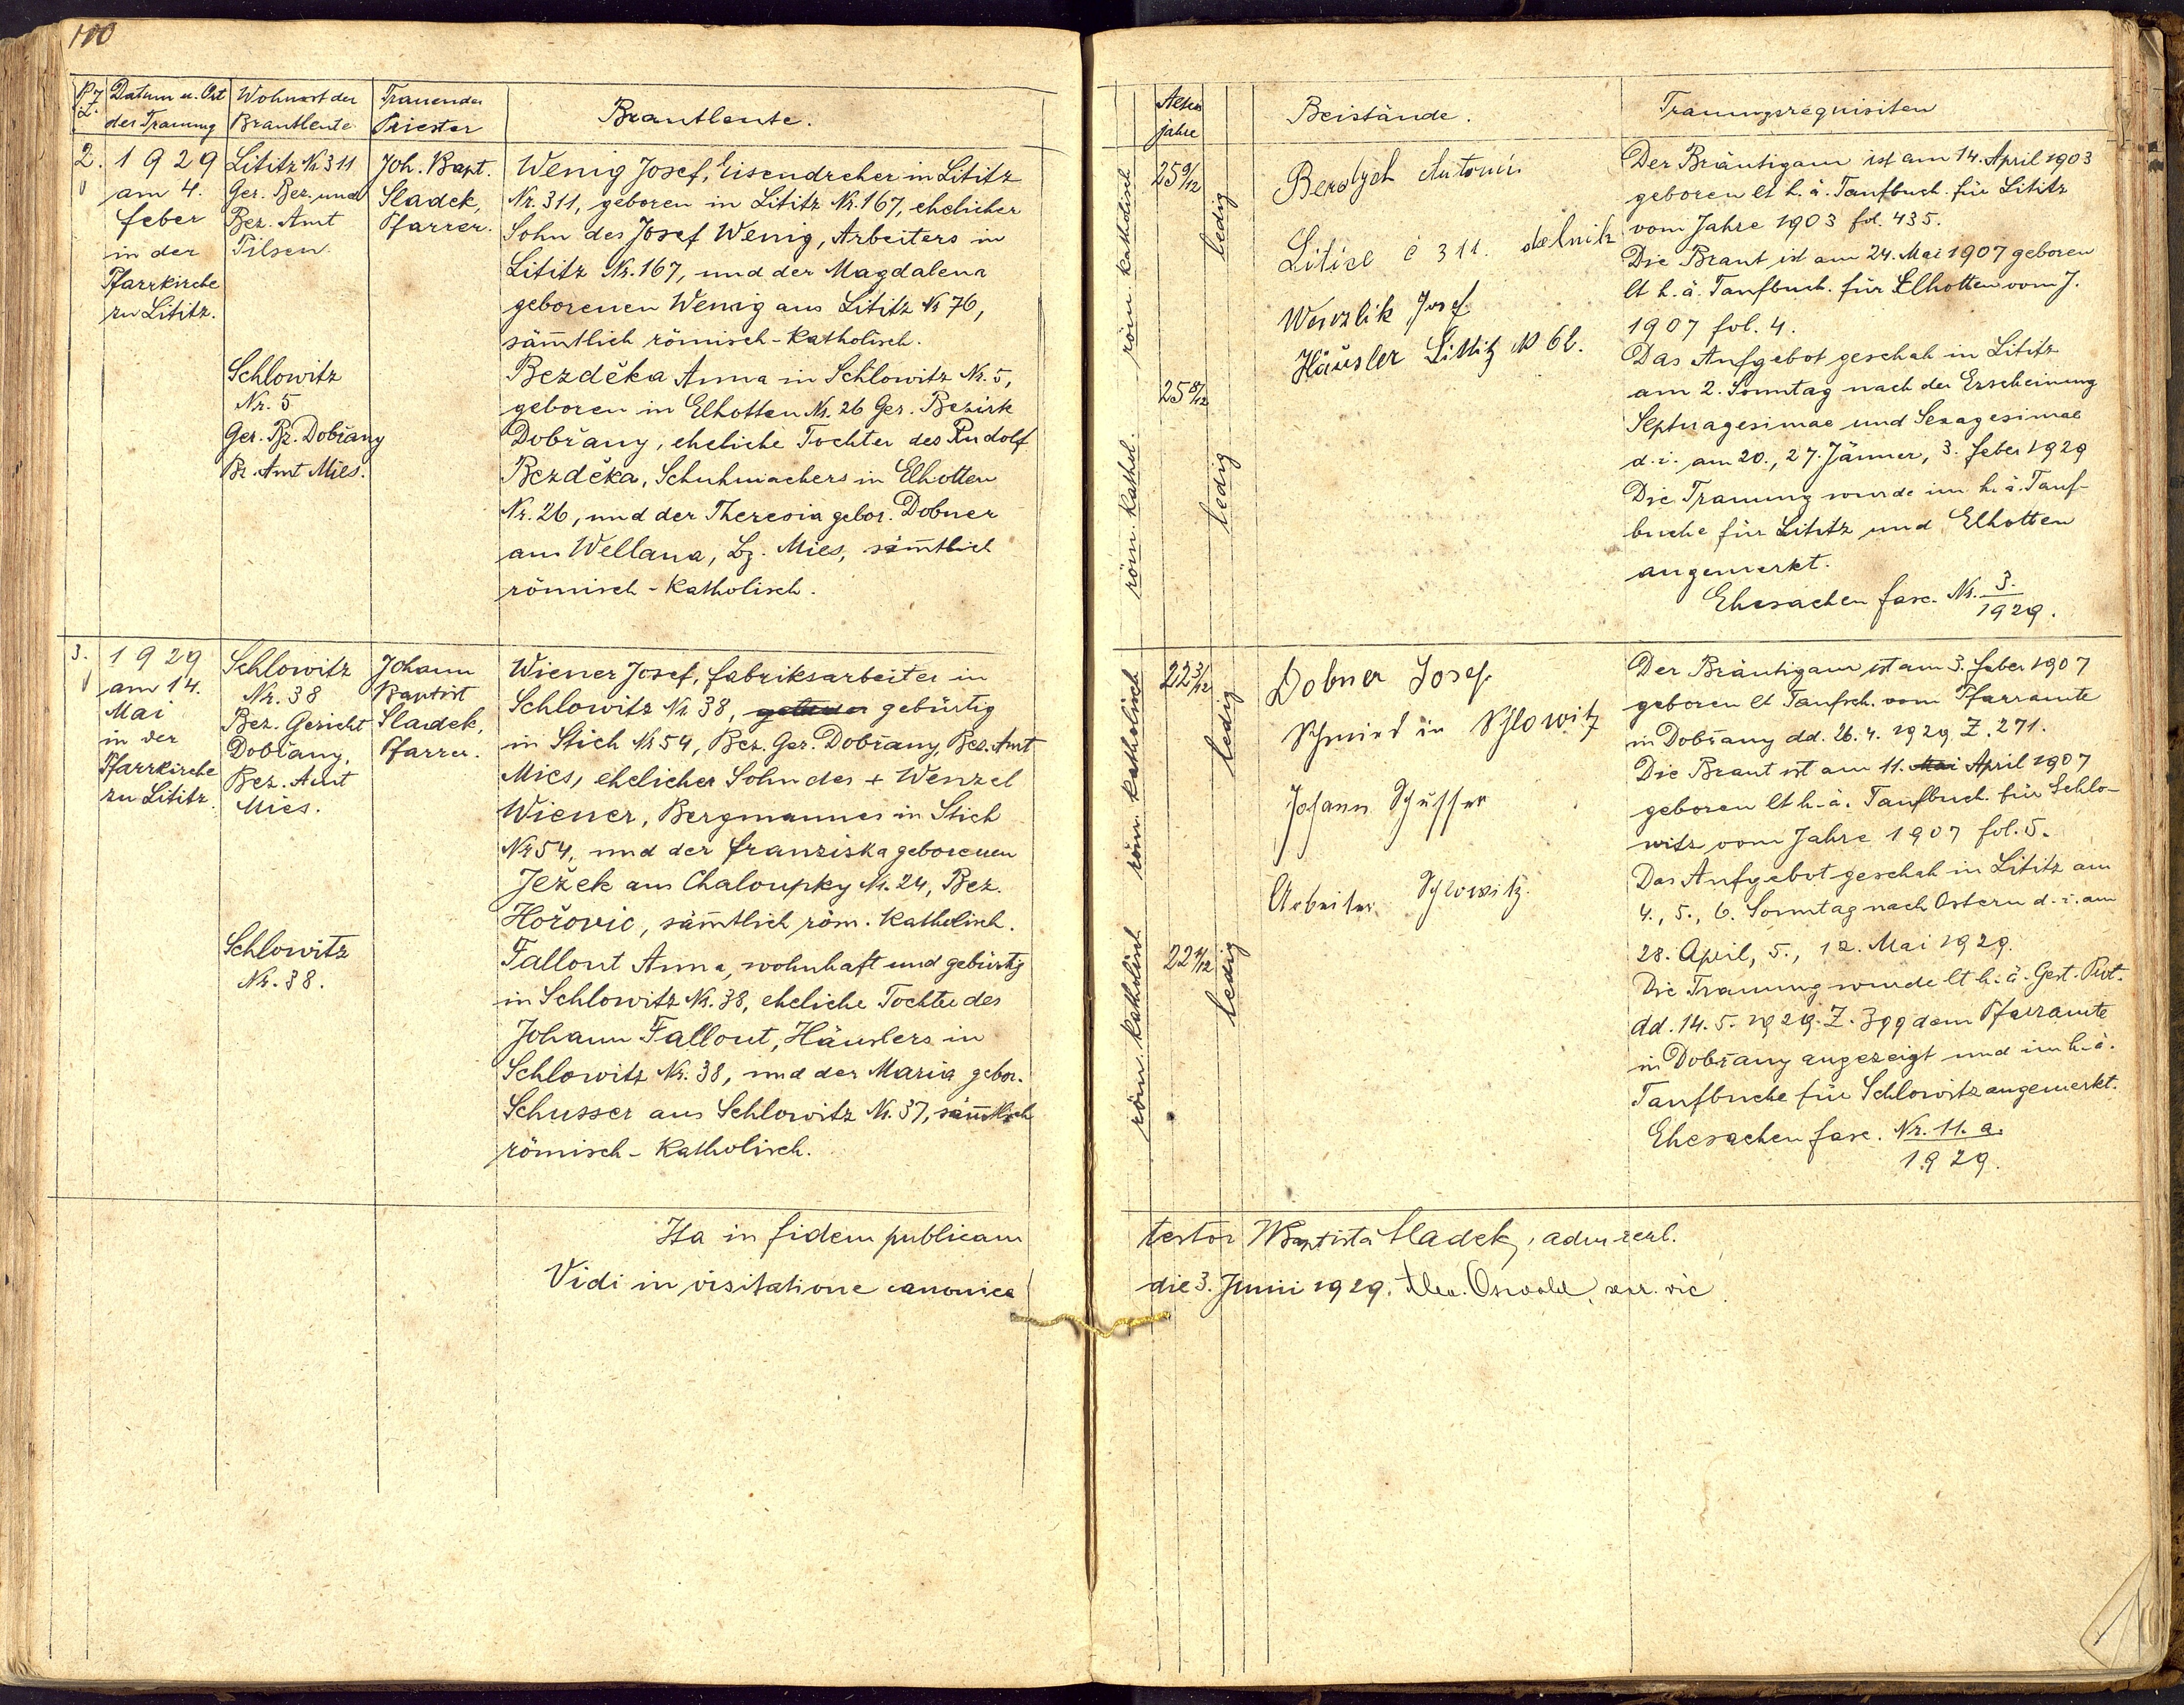 100
P. Z.
Datum u. Ort
der Trauung
Wohnort der
Brautleute
Trauender
Priester
Brautleute.
2.
1929
am 4.
Feber
in der
Pfarrkirche
zu Lititz.
Lititz Nr. 311
Ger. Bez. und
Bez. Amt
Pilsen.
Joh. Bapt.
Sladek,
Pfarrer.
Wenig Josef, Eisendreher in Lititz
Nr. 311, geboren in Lititz Nr. 167, ehelicher
Sohn des Josef Wenig, Arbeiters in
Lititz Nr. 167, und der Magdalena
geborenen Wenig aus Lititz Nr 76,
säm̅tlich römisch-katholisch.
Schlowitz
Nr. 5
Ger. Bz. Dobřany
Bz. Amt Mies.
Bezděka Anna in Schlowitz Nr. 5,
geboren in Elhotten Nr. 26 Ger. Bezirk
Dobřany, eheliche Tochter des Rudolf
Bezděka, Schuhmachers in Elhotten
Nr. 26, und der Theresia gebor. Dobner
aus Wellana, Bz. Mies, säm̅tlich
römisch-katholisch.
3.
1929
am 14.
Mai
in der
Pfarrkirche
zu Lititz.
Schlowitz
Nr. 38
Bez. Gericht
Dobřany,
Bez. Amt
Mies.
Johann
Baptist
Sladek,
Pfarrer.
Wiener Josef, Fabriksarbeiter in
Schlowitz Nr 38, gebürtig
in Stich Nr 54, Bez. Ger. Dobřany, Bez. Amt
Mies, ehelicher Sohn des + Wenzel
Wiener, Bergmannes in Stich
Nr 54, und der Franziska geborenen
Ježek aus Chaloupky Nr. 24, Bez.
Hořovic, säm̅tlich röm. katholisch.
Schlowitz
Nr. 38.
Fallout Anna, wohnhaft und gebürtig
in Schlowitz Nr. 38, eheliche Tochter des
Johann Fallout, Häuslers in
Schlowitz Nr. 38, und der Maria gebor.
Schusser aus Schlowitz Nr. 37, säm̅tlich
römisch-katholisch.
Ita in fidem publicam
Vidi in visitatione canonica
Alter
jahre
Beistände.
Trauungsrequisiten
röm. katholisch
25 9/12
ledig
röm. kathol.
25 8/12
ledig
Antonín
Litice č 311. dělník
Josef
Häusler Littitz № 62.
Der Bräutigam ist am 14. April 1903
geboren lt h. ä. Taufbuch für Lititz
vom Jahre 1903 fol. 435.
Die Braut ist am 24. Mai 1907 geboren
lt h. ä. Taufbuch für Elhotten vom J.
1907 fol. 4.
Das Aufgebot geschah in Lititz
am 2. Sonntag nach der Erscheinung
Septuagesimae und Sexagesimae
d. i. am 20., 27. Jänner, 3. Feber 1929
Die Trauung wurde im h. ä. Tauf-
buche für Lititz und Elhotten
angemerkt.
Ehesachen fasc. Nr. 3.
1929.
röm. katholisch
22 3/12
ledig
röm. katholisch
22 1/12
ledig
Dobner Josef
Schmied in Schlowitz
Johann Schusser
Arbeiter Schlowitz.
Der Bräutigam ist am 3. Feber 1907
geboren lt Taufsch. vom Pfarramte
in Dobřany dd. 26. 4. 1929 Z. 271.
Die Braut ist am 11. Mai April 1907
geboren lt h. ä. Taufbuch für Schlo-
witz vom Jahre 1907 fol. 5.
Das Aufgebot geschah in Lititz am
4., 5., 6. Sonntag nach Ostern d. i. am
28. April, 5., 12. Mai 1929.
Die Trauung wurde lt h. ä. Gest. Prot.
dd. 14. 5. 1929. Z. 399 dem Pfarramte
in Dobřany angezeigt und im h. ä.
Taufbuche für Schlowitz angemerkt.
Ehesachen fasc. Nr. 11. a.
1929.
testor JBaptista Sladek, adm. eccl.
die 3. Junii 1929. Oswald, vic